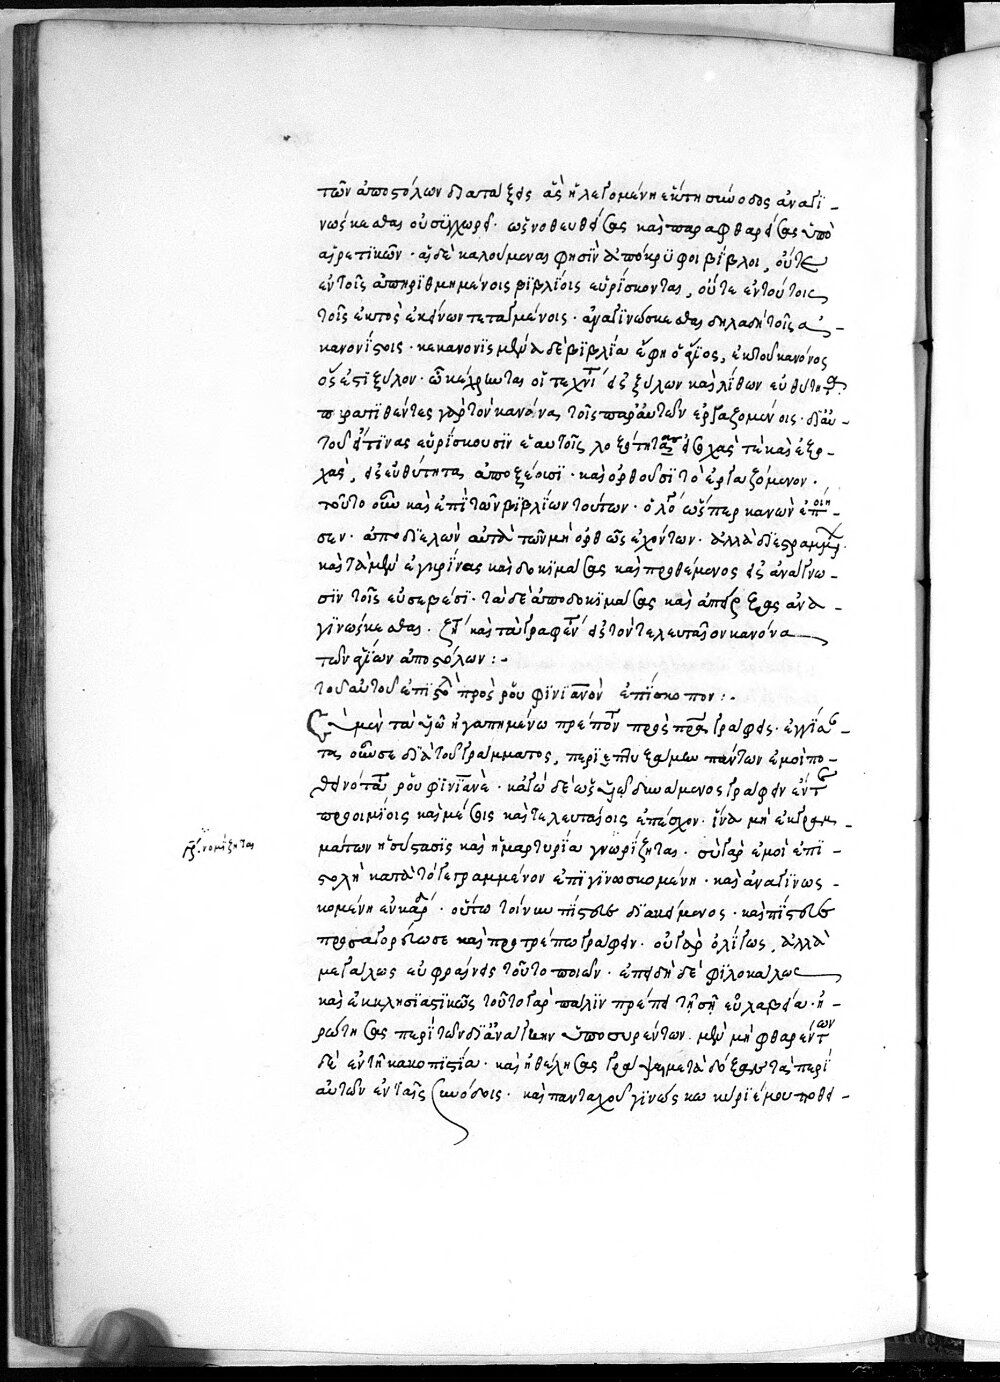 τῶν ἀποστόλων διαταγὰς ἃς ἡ λεγομένη ἕκτη σύνοδος ἀναγι-
νώσκεσθαι οὐ συγχωρεῖ· ὡς νοθευθείσας καὶ παραφθαρείσας ὑπὸ
αἱρετικῶν· αἱ δὲ καλούμεναι φησὶν ἀπόκρυφοι βίβλοι, οὔτε
ἐν τοῖς ἀπηριθμημένοις βιβλίοις εὑρίσκονται, οὔτε ἐν τούτοις
τοῖς ἐκτὸς ἐκείνων τεταγμένοις· ἀναγινώσκεσθαι δηλαδὴ τοῖς ἀ-
κανονίστοις· κεκανονισμένα δὲ βιβλία ἔφη ὁ ἅγιος, ἐκ τοῦ κανόνος
ὅς ἐστι ξύλον· ᾧ κέχρωνται οἱ τεχνῖται εἰς ξύλων καὶ λίθων εὐθύτητα
περιτιθέντες γὰρ τὸν κανόνα τοῖς παρ' αὐτῶν ἐργαζομένοις· δι' αὐ-
τοῦ εἴ τινας εὑρίσκουσιν ἐν αὐτοῖς λοξότητας εἰσοχάς τε καὶ ἐξο-
χάς, εἰς εὐθύτητα ἀποξέουσι· καὶ ὀρθοῦσι τὸ ἐργαζόμενον·
τοῦτο οὖν καὶ ἐπὶ τῶν βιβλίων τούτων· ὁ λόγος ὥσπερ κανὼν ἐποίη-
σεν· ἀποδιελὼν αὐτὰ τῶν μὴ ὀρθῶς ἐχόντων· ἀλλὰ διεστραμμένως·
καὶ τὰ μὲν ἐγκρίνας καὶ δοκιμάσας καὶ προθέμενος εἰς ἀνάγνω-
σιν τοῖς εὐσεβέσι· τὰ δὲ ἀποδοκιμάσας καὶ ἀπείρξας ἀνα-
γινώσκεσθαι. ζήτει καὶ τὰ γραφέντα εἰς τὸν τελευταῖον κανόνα
τῶν ἁγίων ἀποστόλων :-
τοῦ αὐτοῦ ἐπιστολὴ πρὸς ῥουφινιανὸν ἐπίσκοπον :-
Σὺ μὲν τὰ υἱῷ ἠγαπημένῳ πρέποντα πρὸς πατέρα γράφεις· ἐγγίσαν-
τα οὖν σε διὰ τοῦ γράμματος, περιεπτυξάμην πάντων ἐμοὶ πο-
θεινότατε ῥουφινιανὲ· κἀγὼ δὲ ὡς υἱῷ δυνάμενος γράφειν ἔν τε
προοιμίοις καὶ μέσοις καὶ τελευταίοις ἐπέσχον· ἵνα μὴ ἐκ γραμ-
μάτων ἡ σύστασις καὶ ἡ μαρτυρία γνωρίζηται· σὺ γὰρ ἐμοὶ ἐπι-
στολὴ κατὰ τὸ γεγραμμένον ἐπιγινωσκομένη· καὶ ἀναγινωσ-
κομένη ἐν καρδίᾳ· οὕτω τοίνυν πίστευε διακείμενος· καὶ πίστευε
προσαγορεύω σε καὶ προτρέπω γράφειν· οὐ γὰρ ὀλίγως, ἀλλὰ
μεγάλως εὐφραίνεις τοῦτο ποιῶν· ἐπειδὴ δὲ φιλοκάλως
καὶ ἐκκλησιαστικῶς τοῦτο γὰρ πάλιν πρέπει τῇ σῇ εὐλαβείᾳ· ἠ-
ρώτησας περὶ τῶν δι' ἀνάγκην ὑποσυρέντων· μὲν μὴ φθαρέντων
δὲ ἐν τῇ κακοπιστίᾳ· καὶ ἠθέλησας γράψαι με τὰ δόξαντα περὶ
αὐτῶν ἐν ταῖς συνόδοις· καὶ πανταχοῦ γίνωσκε κύριέ μου ποθει-
γρ. νομίζηται